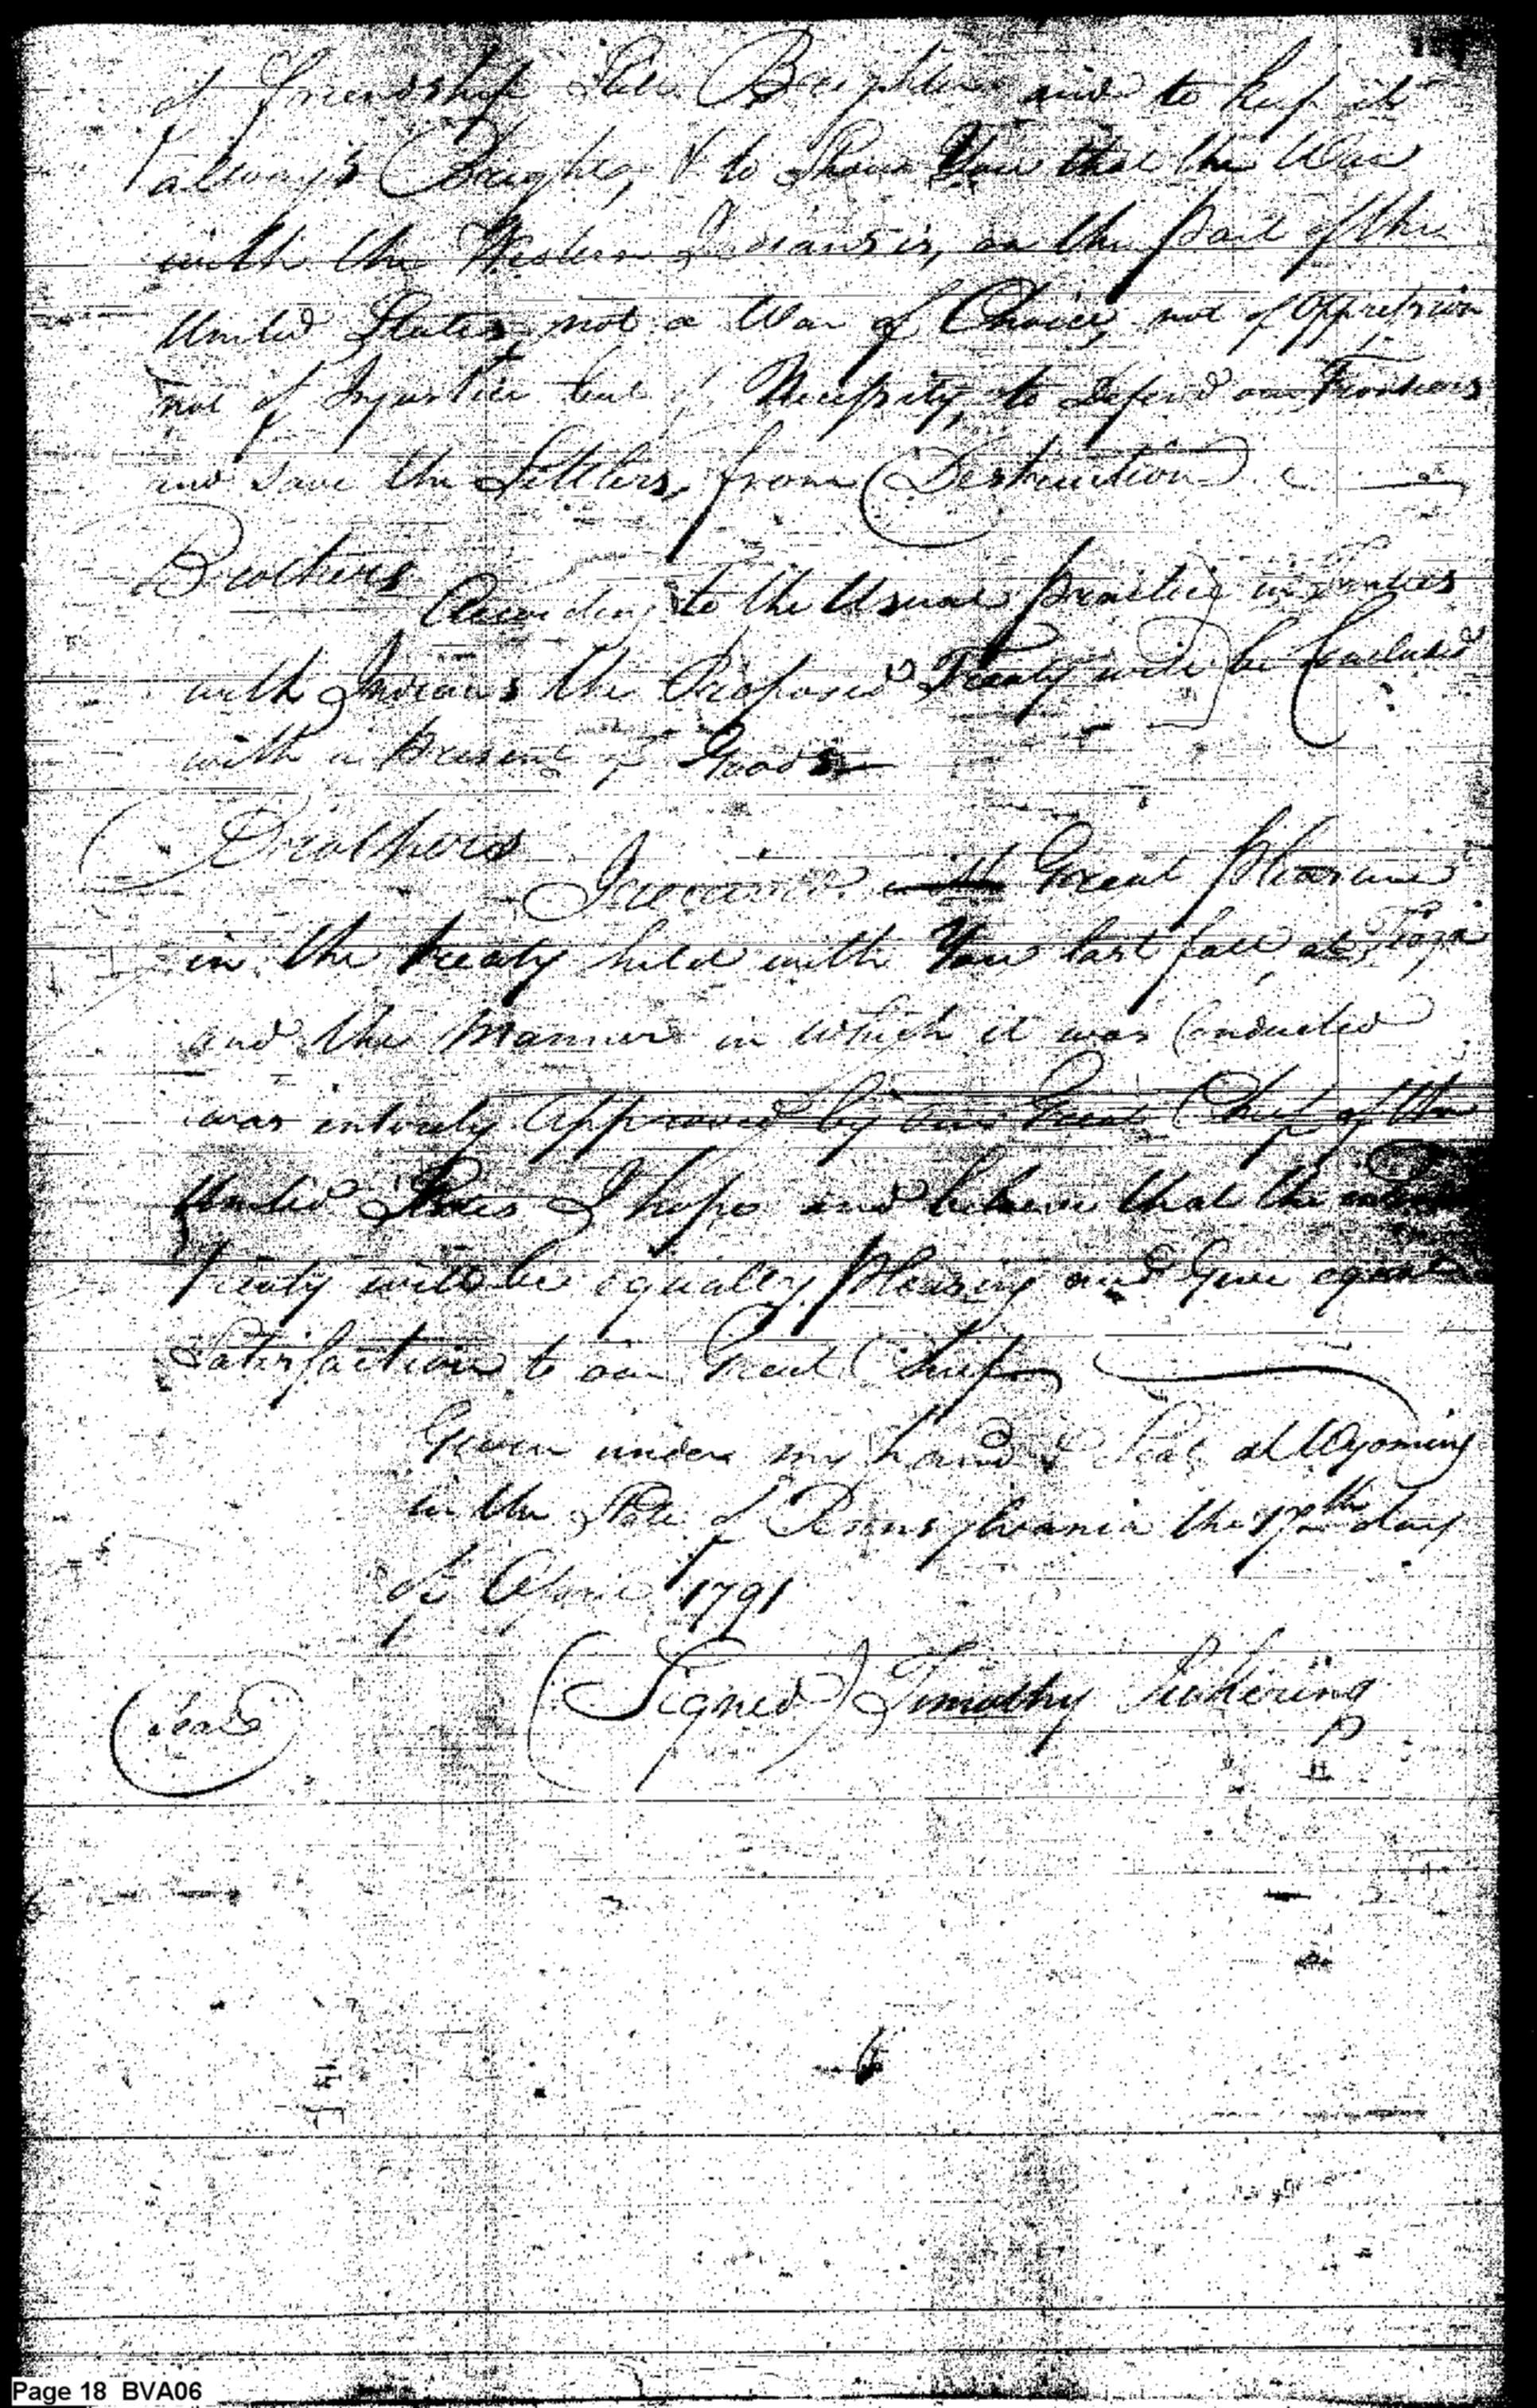 of friendship still Brighter and to keep it
always Bright, & to Show You that the War
with the Western Indians is, on the part of the
United States, not a War of Choice, not of Oppression
not of Injustice but of Necessity, to Defend our Frontiers
and save the Settlers, from Destruction
Brothers
According to the Usual practice in Treaties
with Indians the Proposed Treaty will be Concluded
with a present of Goods
Brothers
I received Great pleasure
in the treaty held with You last fall at Tioga
and the Manner in which it was Conducted
was intirely approved by our Great Chief of the
United States I hope and believe that the
Treaty will be equally pleasing and Give equal
Satisfaction to our Great Chief
Given under my hand & Seal at Wyoming
in the State of Pennsylvania the 17th day
of April 1791
(Signed) Timothy Pickering
Seal
Page 18 BVA06